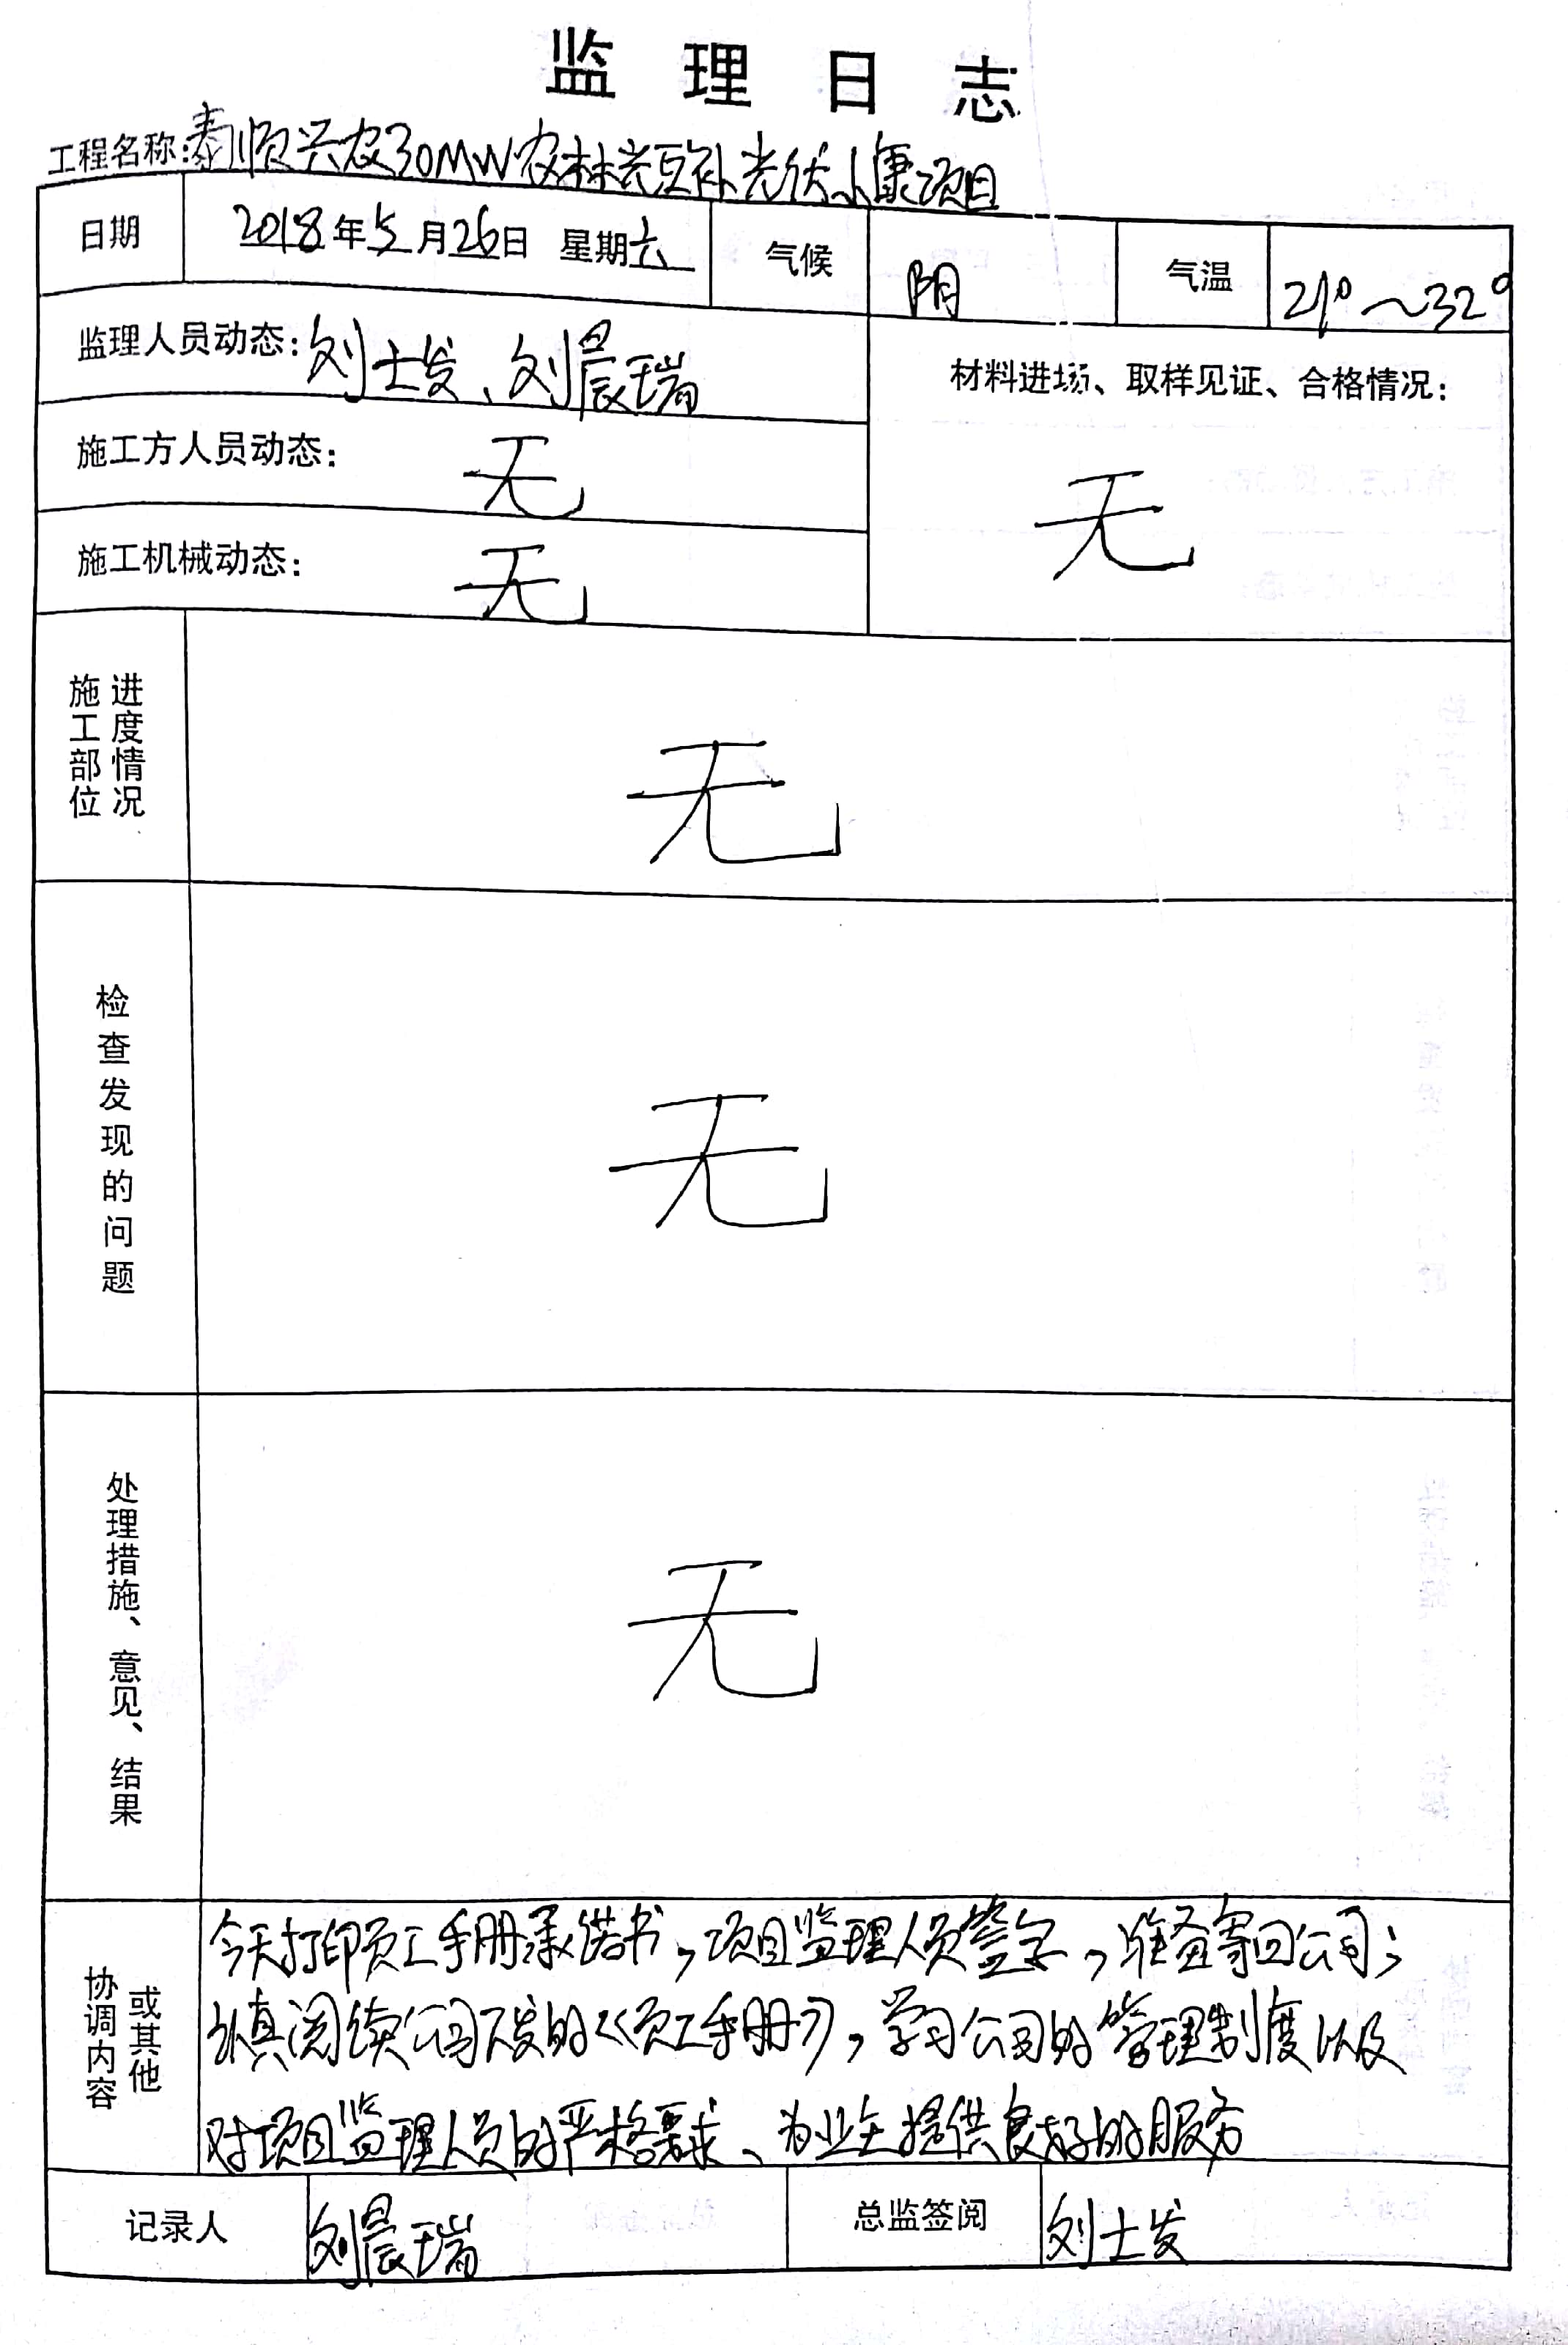 监理日志
工程名称:泰顺兴农30MW农林光互补光伏小康项目
日期 2018年5月26日 星期六 气候 阴 气温 21°~32°
监理人员动态:刘士发、刘晨瑞
材料进场、取样见证、合格情况:
无
施工方人员动态: 无
施工机械动态: 无
施工部位
进度情况
无
检查发现的问题
无
处理措施、意见、结果
无
协调内容
或其他
今天打印员工手册承诺书,项目监理人员签字,准备寄回公司;
认真阅读公司下发的《员工手册》,学习公司的管理制度以及
对项目监理人员的严格要求、为业主提供良好的服务
记录人 刘晨瑞 总监签阅 刘士发